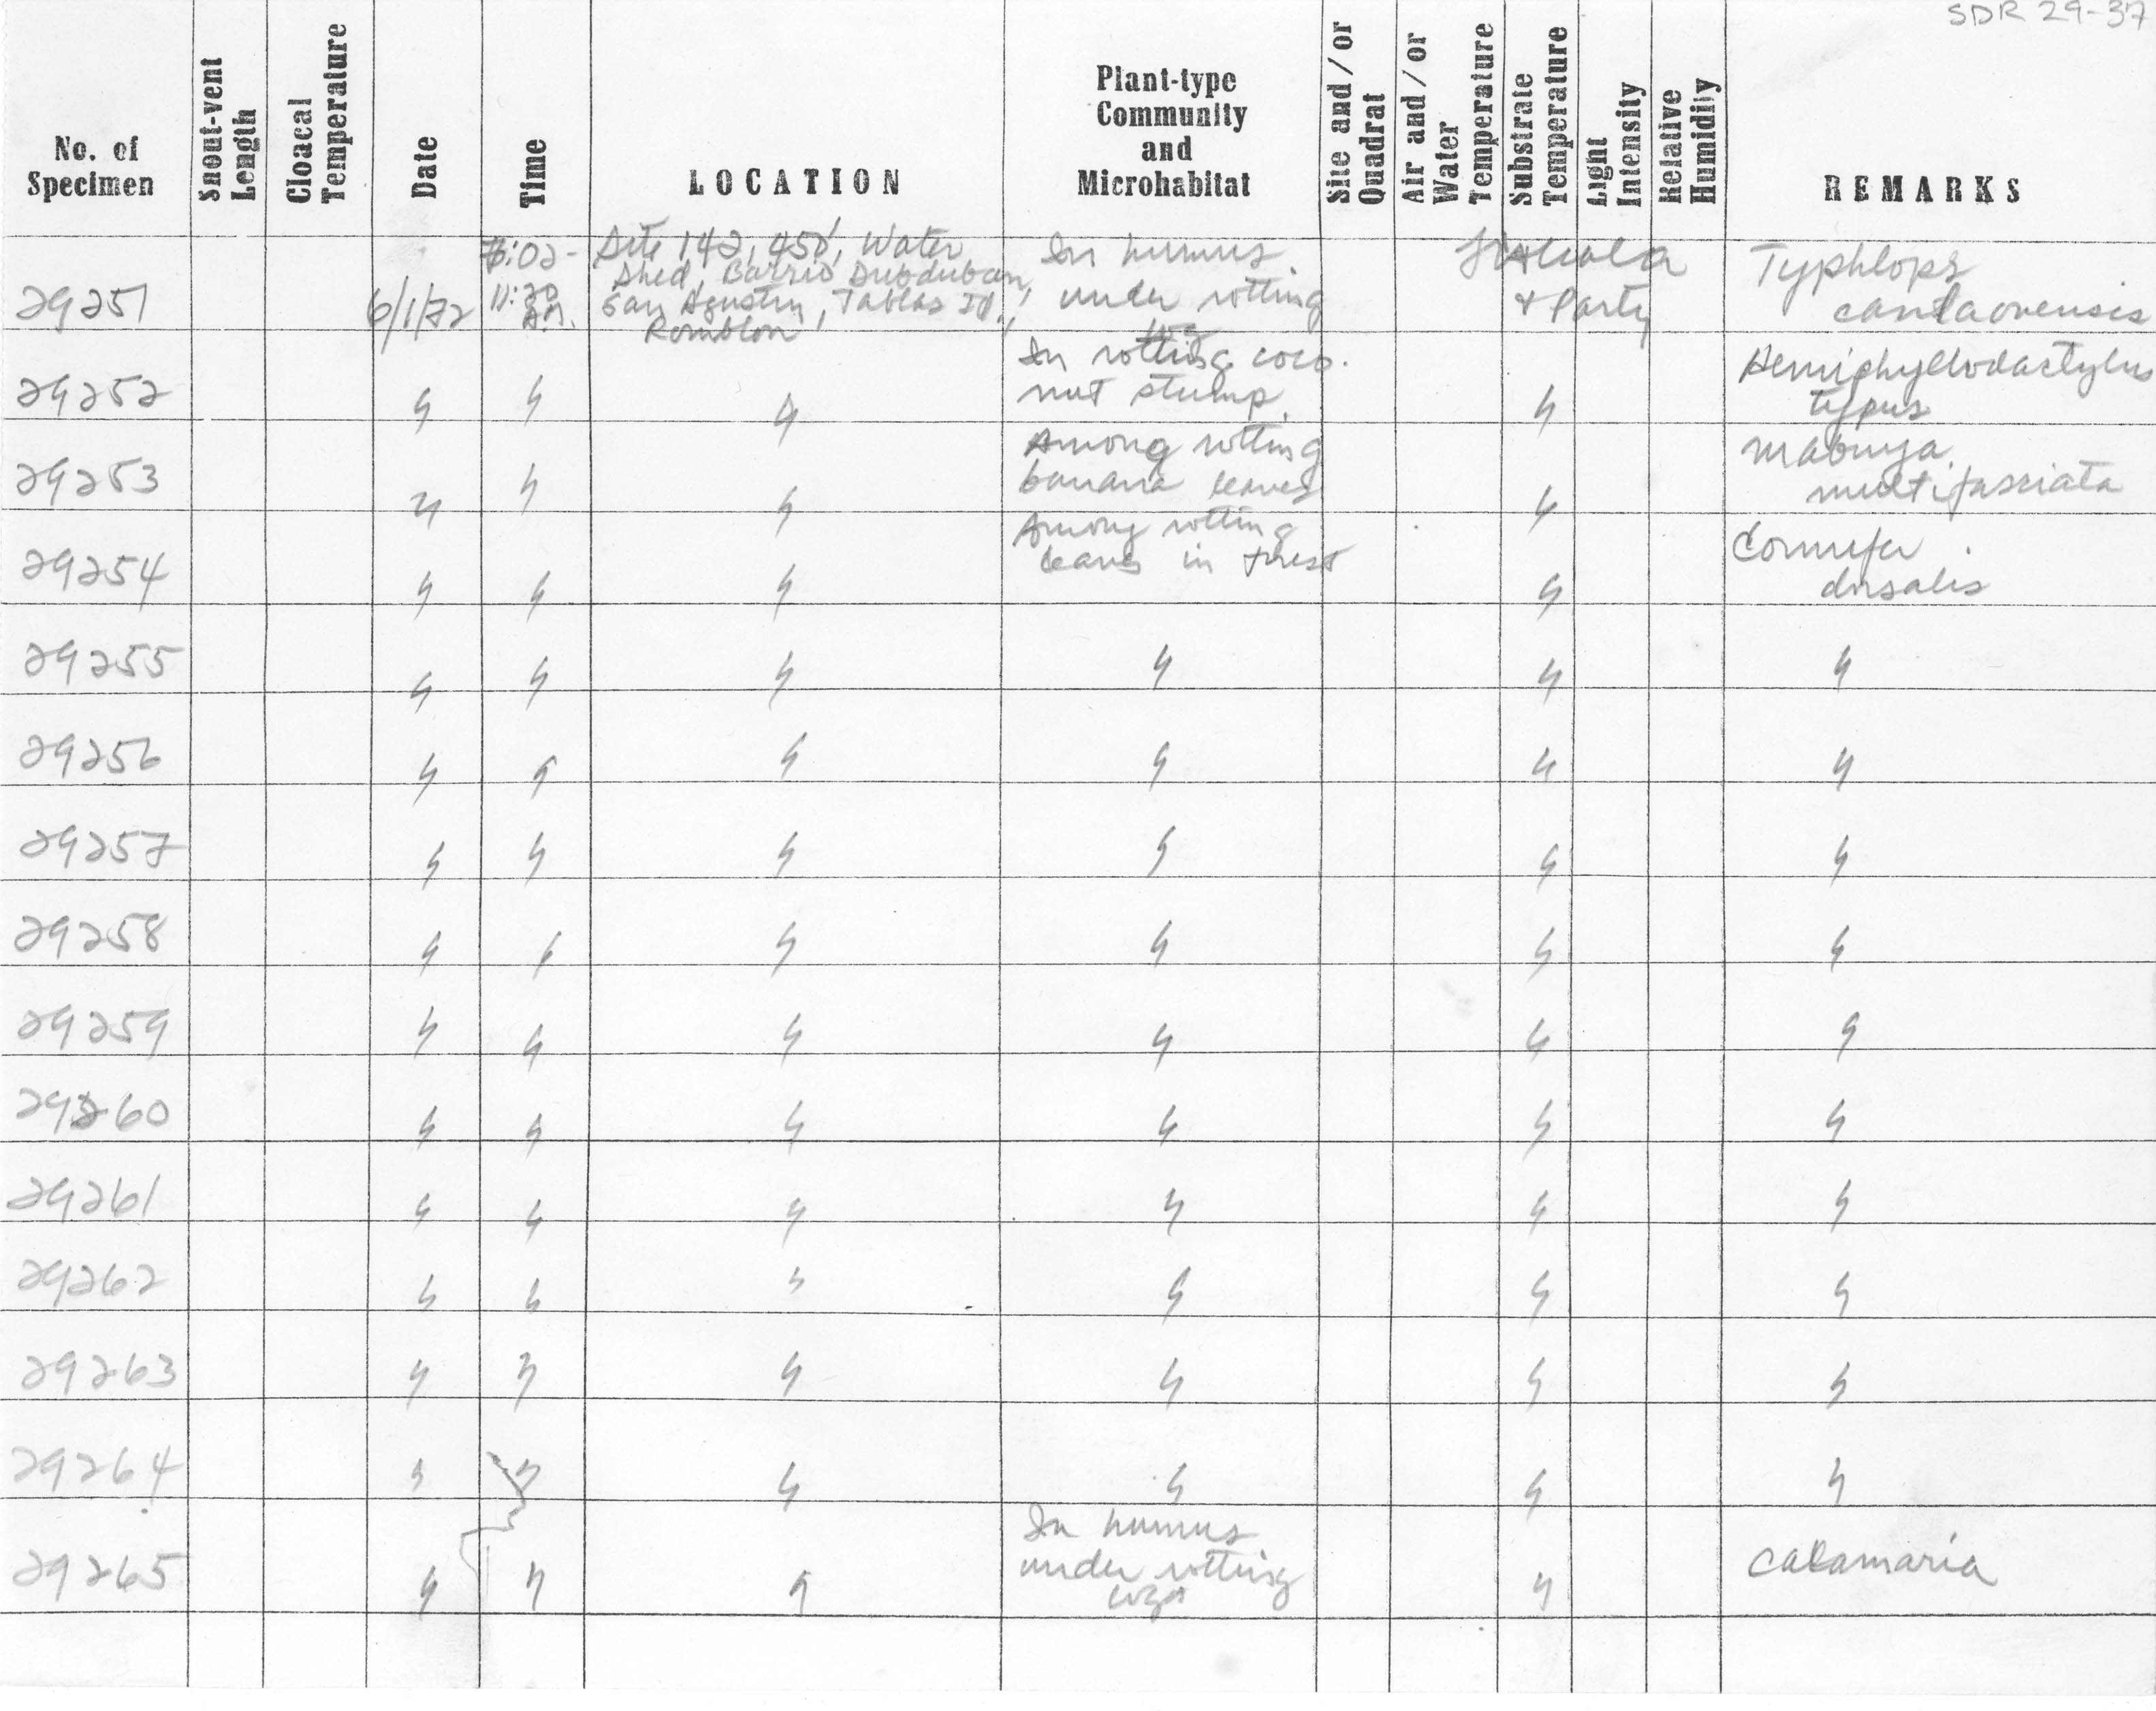 SDR 29-37
No. of Specimen | Snout-vent Length | Cloacal Temperature | Date | Time | LOCATION | Plant-type Community and Microhabitat | Site and/or Quadrat | Air and/or Water Temperature | Substrate Temperature | Light Intensity | Relative Humidity | REMARKS
29251 | 6/1/72 | :02-11:20 a.m. | Site 142, 450', Water Shed, Barrio Dubduban, San Agustin, Tablas Id., Romblon | In humus under rotting log | Alcala & Party | Typhlops canlaonensis
29252 | 〃 | 〃 | 〃 | In rotting coconut stump. | 〃 | Hemiphyllodactylus typus
29253 | 〃 | 〃 | 〃 | Among rotting banana leaves | 〃 | Mabuya multifasciata
29254 | 〃 | 〃 | 〃 | Among rotting leaves in forest | 〃 | Cornufer dorsalis
29255 | 〃 | 〃 | 〃 | 〃 | 〃 | 〃
29256 | 〃 | 〃 | 〃 | 〃 | 〃 | 〃
29257 | 〃 | 〃 | 〃 | 〃 | 〃 | 〃
29258 | 〃 | 〃 | 〃 | 〃 | 〃 | 〃
29259 | 〃 | 〃 | 〃 | 〃 | 〃 | 〃
29260 | 〃 | 〃 | 〃 | 〃 | 〃 | 〃
29261 | 〃 | 〃 | 〃 | 〃 | 〃 | 〃
29262 | 〃 | 〃 | 〃 | 〃 | 〃 | 〃
29263 | 〃 | 〃 | 〃 | 〃 | 〃 | 〃
29264 | 〃 | 〃 | 〃 | 〃 | 〃 | 〃
29265 | 〃 | 〃 | 〃 | In humus under rotting logs | 〃 | Calamaria